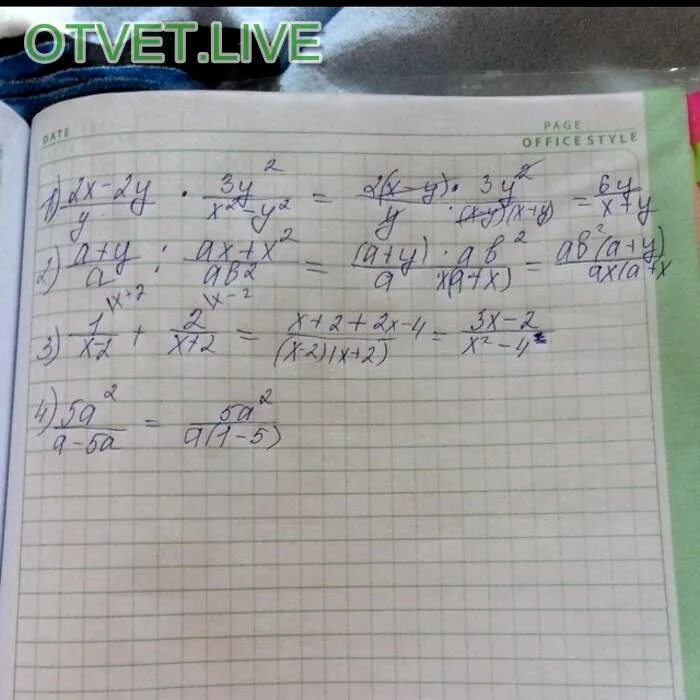 OTVET.LIVE
DATE
PAGE
OFFICE STYLE
1) (2x-2y)/y · 3y²/(x²-y²) = 2(x-y) · 3y²/(y (x-y)(x+y)) = 6y/(x+y)
2) (a+y)/a : (ax+x²)/(ab²) = (a+y) · ab²/(a x(a+x)) = ab²(a+y)/(ax(a+x
3) 1/(x-2) |x+2 + 2/(x+2) |x-2 = (x+2+2x-4)/((x-2)(x+2)) = (3x-2)/(x²-4)
4) 5a²/(a-5a) = 5a²/(a(1-5))